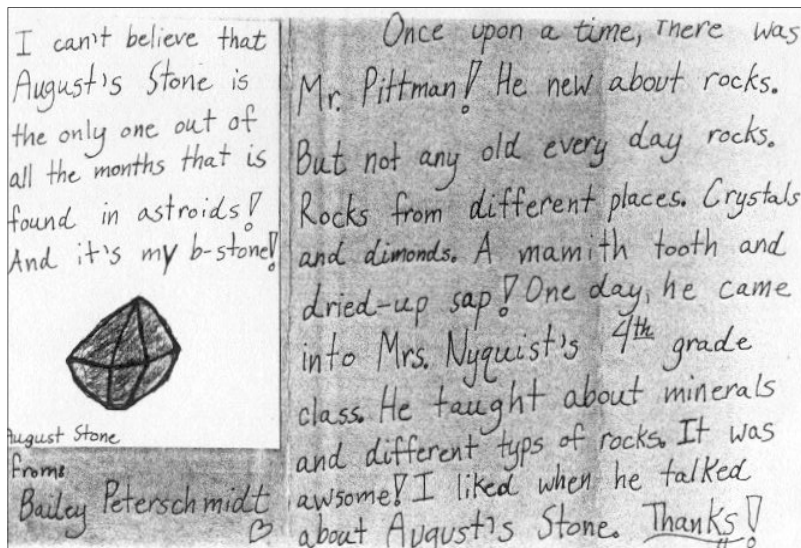 I can't believe that
August's Stone is
the only one out of
all the months that is
found in astroids!
And it's my b-stone!
August Stone
from:
Bailey Peterschmidt
Once upon a time, There was
Mr. Pittman! He new about rocks.
But not any old every day rocks.
Rocks from different places. Crystals
and dimonds. A mamith tooth and
dried-up sap! One day, he came
into Mrs. Nyquist's 4th grade
class. He taught about minerals
and different typs of rocks. It was
awsome! I liked when he talked
about August's Stone. Thanks!